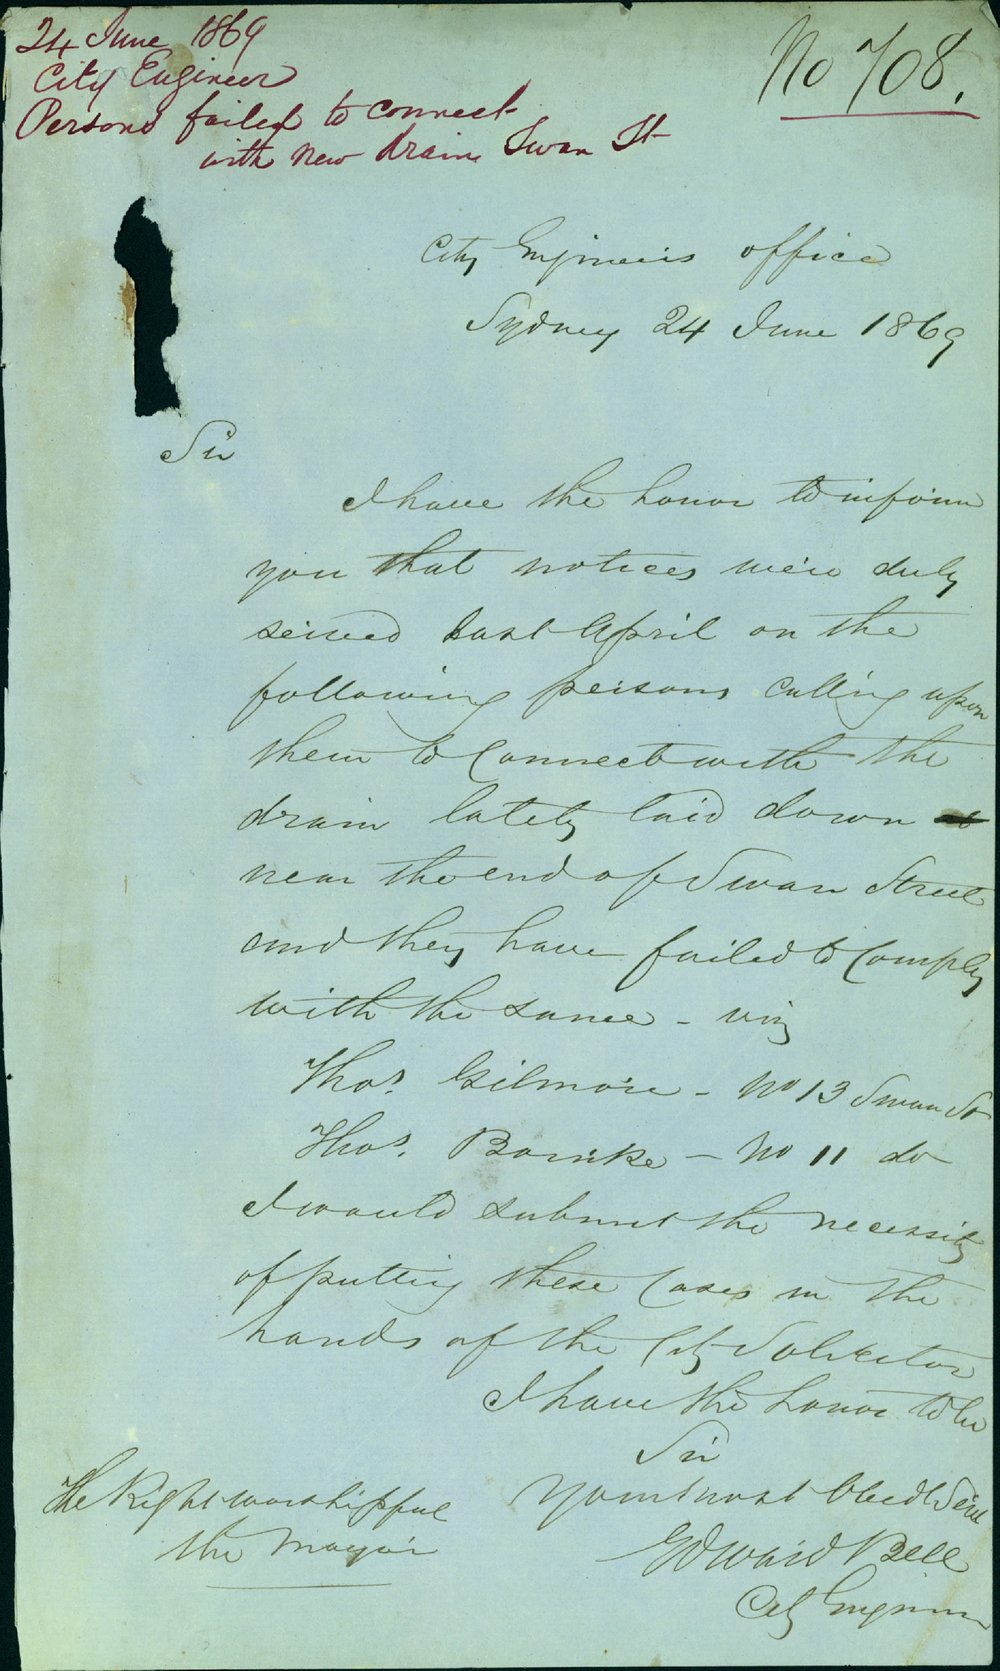 24 June 1869
City Engineer
Persons failed to connect
with new drain Swan St
No 708.
City Engineers office
Sydney 24 June 1869
Sir
I have the honor to inform
you that notices were duly
served last April on the
following persons calling upon
them to Connect with the
drain lately laid down
near the end of Swan Street
and they have failed to Comply
with the same - viz
Thos. Gilmore - No 13 Swan St
Thos. Bourke - No 11 do
I would submit the necessity
of putting these Cases in the
hands of the City Solicitor
I have the honor to be
Sir
Your most Obedt Servt
Edward Bell
City Engineer
The Right worshipful
the Mayor